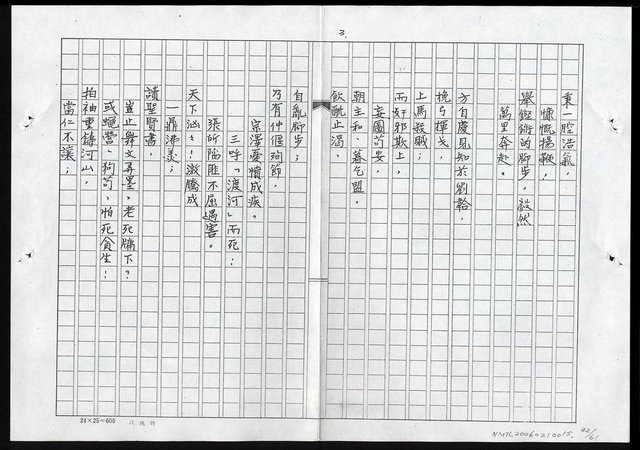 3.
秉一腔浩氣，
慷慨揚鞭，
舉鏗鏘的腳步，毅然
萬里奔赴。
方自慶見知於劉韐，
挽弓揮戈，
上馬殺賊；
而奸邪欺上，
妄圖苟安，
朝主和、暮乞盟，
飲酖止渴，
自亂腳步；
乃有仲偃殉節，
宗澤憂憤成疾。
三呼「渡河」而死；
張所陷匪不屈遇害。
天下洶洶！激騰成
一鼎沸羹；
讀聖賢書，
豈止舞文弄墨，老死牖下？
或蠅營、狗苟，怕死貪生！
拍袖重鑄河山，
當仁不讓；
24×25=600
NMTL20060210015.
22/61